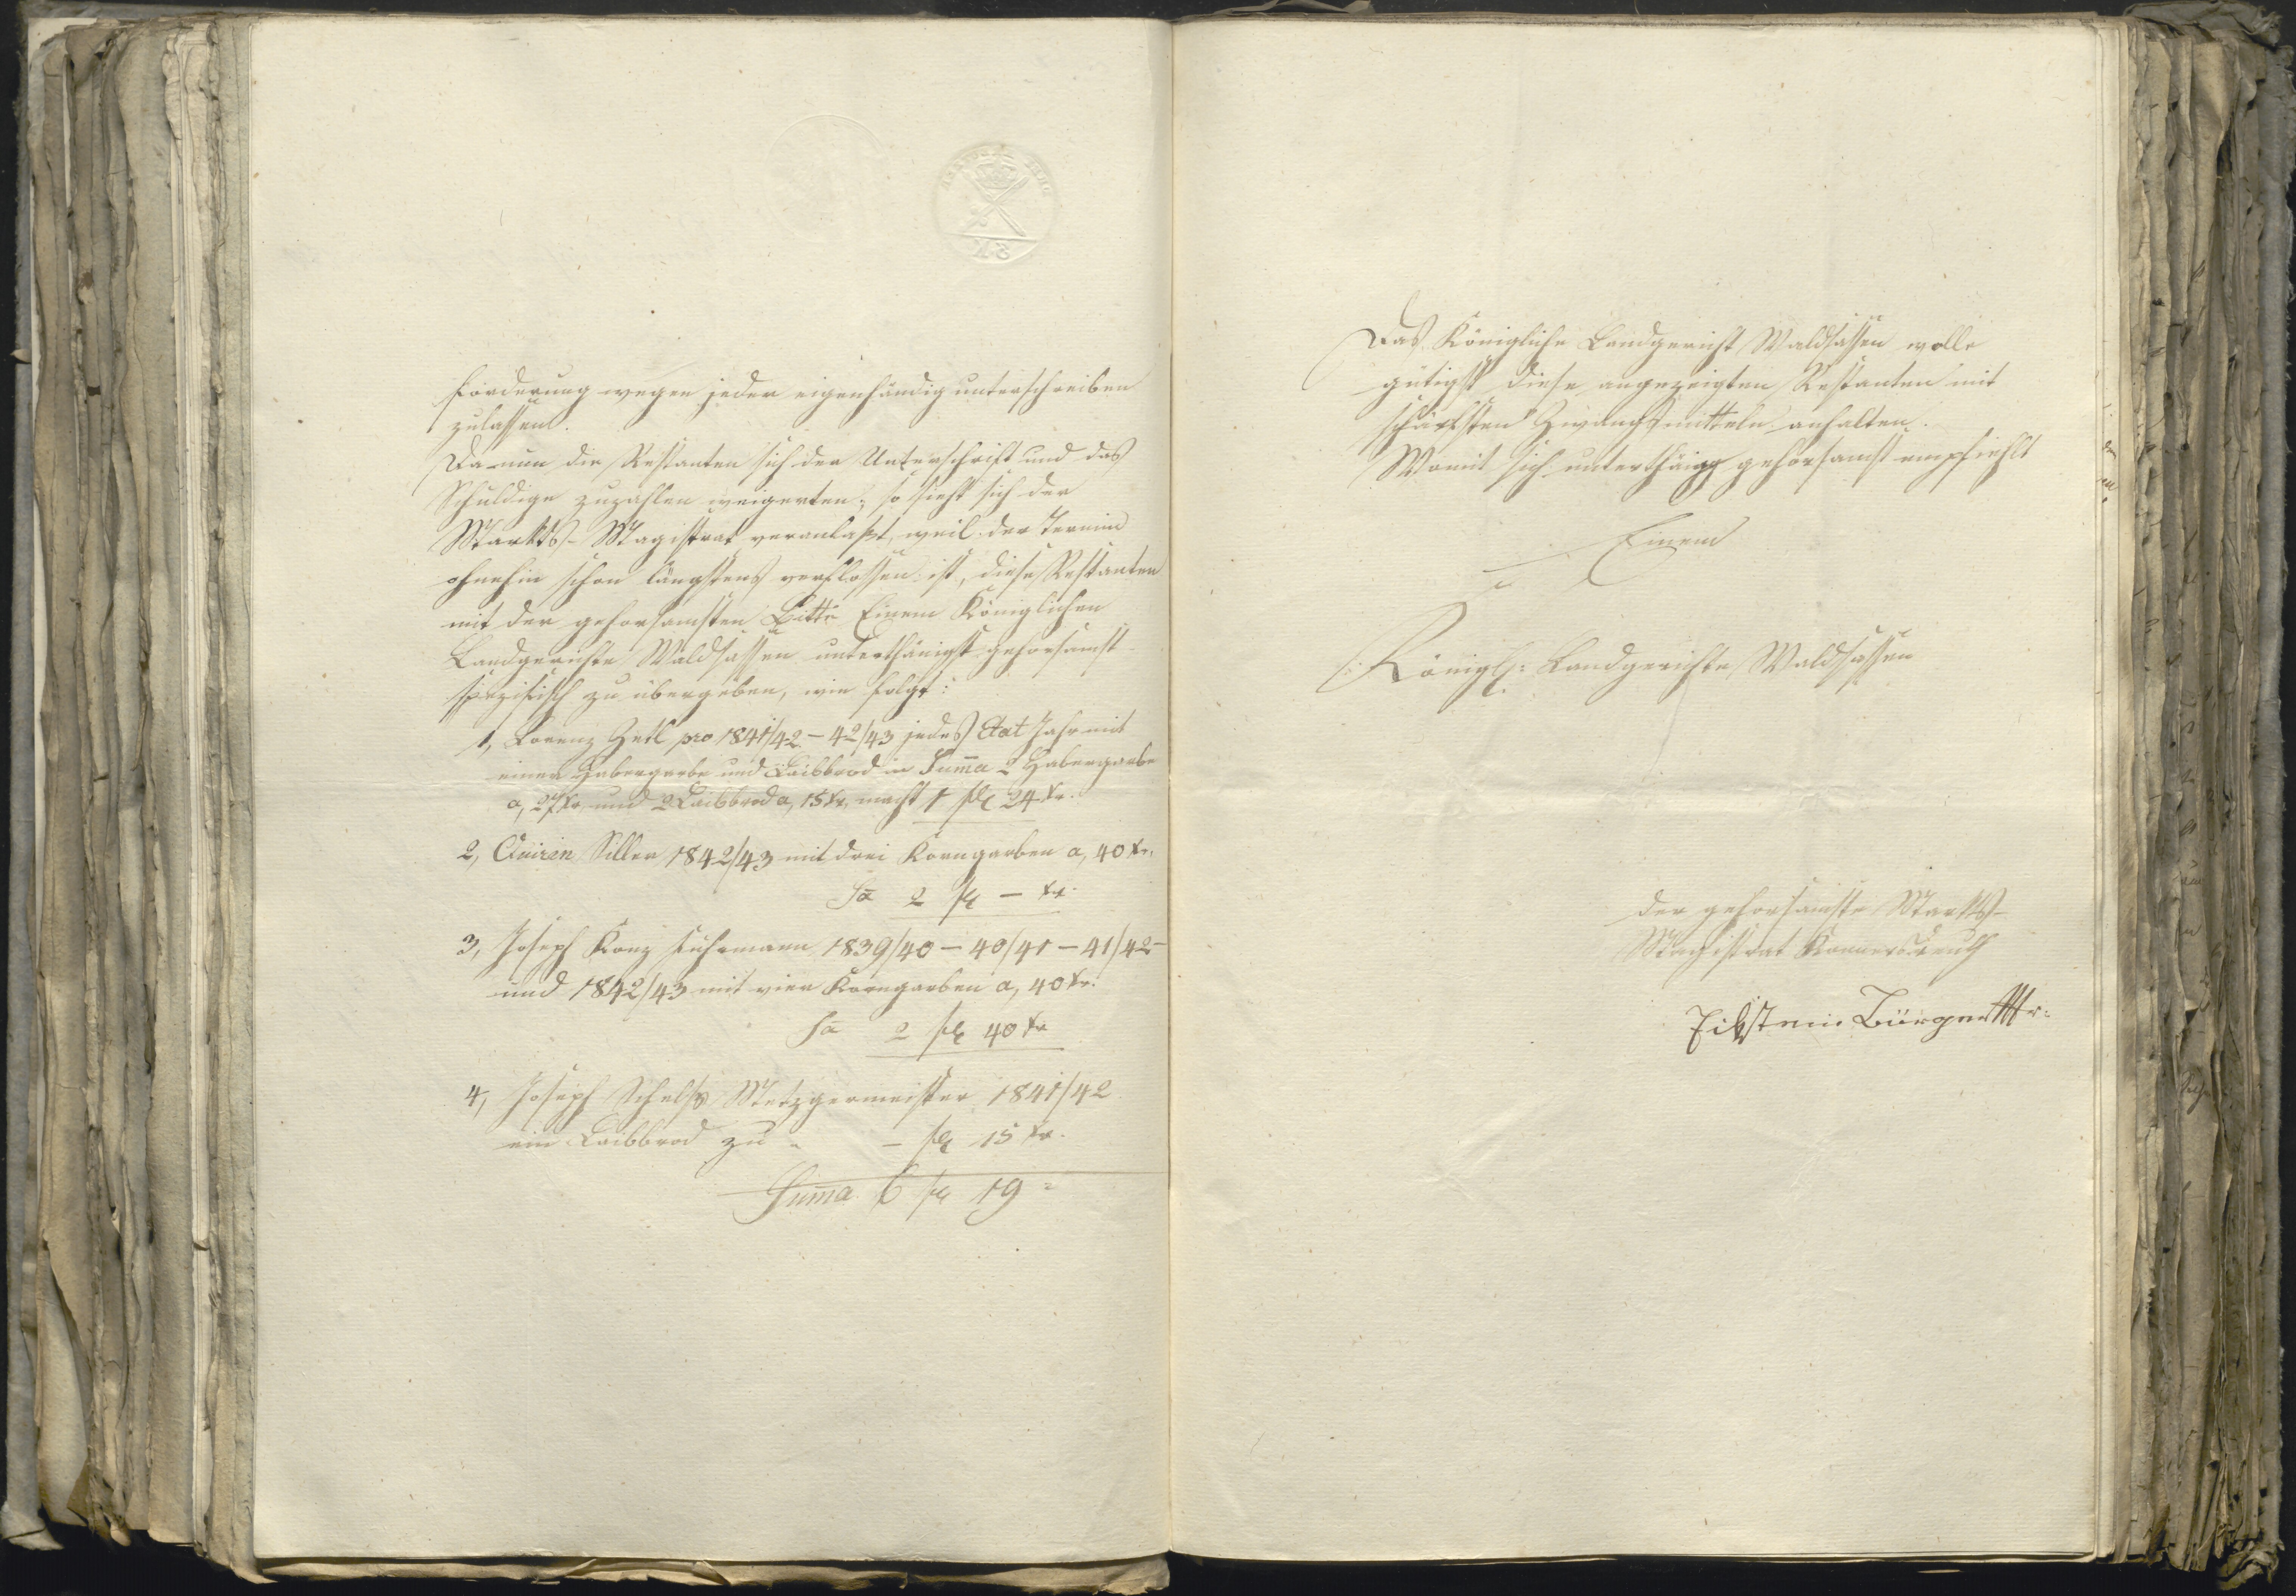 forderung wegen jeder eigenhändig unterschreiben
zulassen.
Da nun die Restanten sich der Unterschrift und das
Schuldige zuzahlen weigerten; so sieht sich der
Markts-Magistrat veranlaßt, weil der Termin
ohnehin schon längstens verflossen ist, diese Restanten
mit der gehorsamsten Bitte Einem Königlichen
Landgerichte Waldsassen unterthänigst gehorsamst
spezifisch zu übergeben, wie folgt:
1, Lorenz Zetl pro 1841/42 - 42/43 jedes Etat Jahr mit
einer Habergarbe und Laibbrod in Suma 2 Habergarbe
a, 27 kr und 2 Laibbrod a, 15 kr. macht 1 fl 24 kr.
2, Quiren Siller 1842/43 mit drei Korngarben a, 40 kr.
Sa 2 fl - kr.
3, Joseph Konz Fuhrmann 1839/40 - 40/41 - 41/42 -
und 1842/43 mit vier Korngarben a, 40 kr.
Sa 2 fl 40 kr
4, Joseph Metzgermeister 1841/42
ein Laibbrod zu - fl 15 kr.
Suma 6 fl 19 =
Das Königliche Landgericht Waldsassen wolle
gütigst diese angezeigten Restanten mit
schärfsten Zwangsmitteln anhalten.
Womit sich unterthänigst gehorsamst empfiehlt
Einem
Königl: Landgerichte Waldsassen
der gehorsamste Markts-
Magistrat Konnersreuth
Bürger Mr: